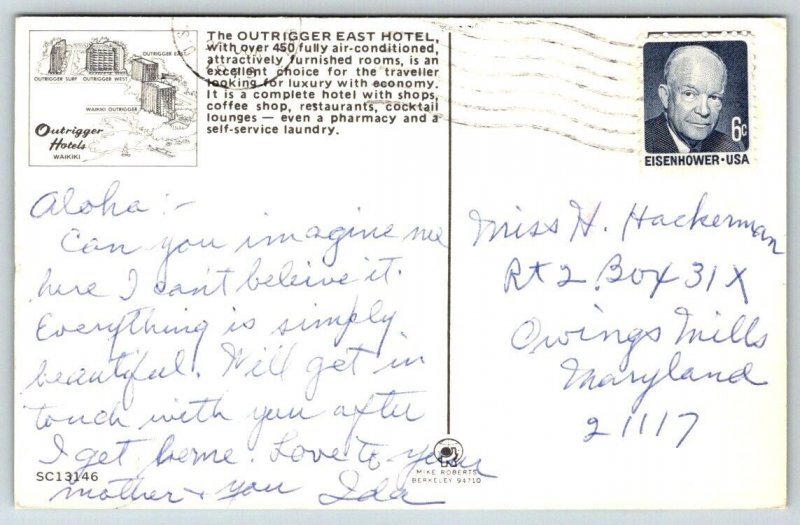 The OUTRIGGER EAST HOTEL,
with over 450 fully air-conditioned,
attractively furnished rooms, is an
excellent choice for the traveller
looking for luxury with economy.
It is a complete hotel with shops,
coffee shop, restaurants, cocktail
lounges — even a pharmacy and a
self-service laundry.
OUTRIGGER EAST
OUTRIGGER SURF OUTRIGGER WEST
WAIKIKI OUTRIGGER
Outrigger
Hotels
WAIKIKI
6c
EISENHOWER·USA
Aloha :-
Can you imagine me
here I can't beleive it.
Everything is simply
beautiful. Will get in
touch with you after
I get home. Love to your
mother + you Ida
Miss H. Hackerman
Rt 2 Box 31X
Owings Mills
Maryland
21117
SC13146
MIKE ROBERTS
BERKELEY 94710